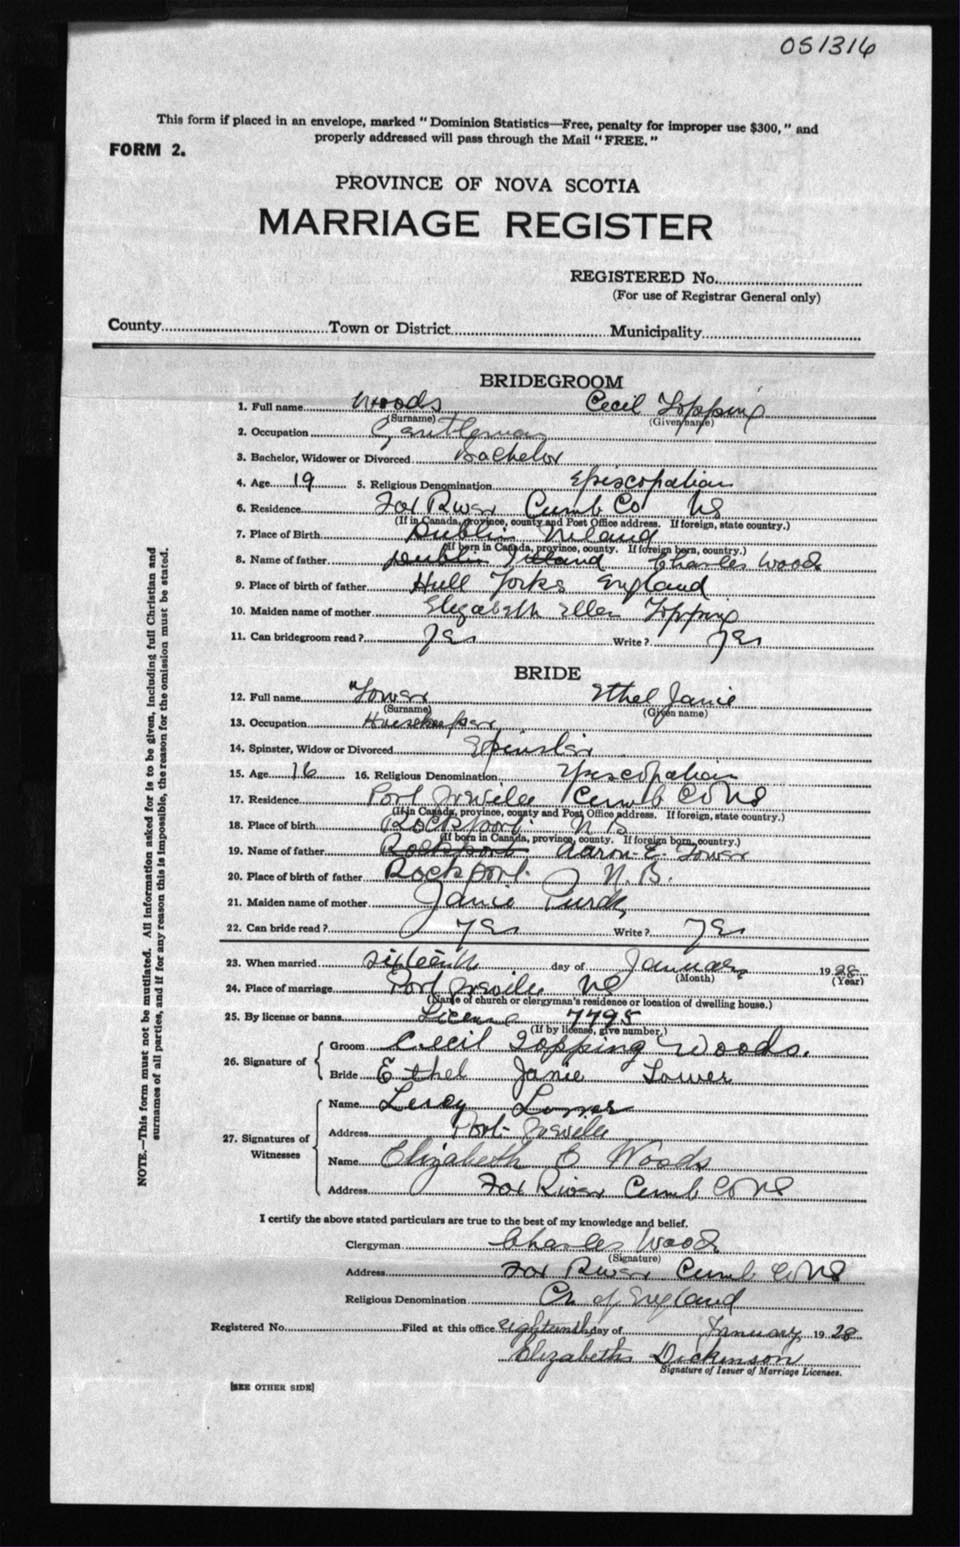 051316
This form if placed in an envelope, marked "Dominion Statistics—Free, penalty for improper use $300," and
properly addressed will pass through the Mail "FREE."
FORM 2.
PROVINCE OF NOVA SCOTIA
MARRIAGE REGISTER
REGISTERED No.
(For use of Registrar General only)
County Town or District Municipality
BRIDEGROOM
1. Full name Woods Cecil Topping
(Surname) (Given name)
2. Occupation Gentleman
3. Bachelor, Widower or Divorced Bachelor
4. Age 19 5. Religious Denomination Episcopalian
6. Residence Fox River Cumb Co NS
(If in Canada, province, county and Post Office address. If foreign, state country.)
7. Place of Birth Dublin Ireland
(If born in Canada, province, county. If foreign born, country.)
8. Name of father Dublin Ireland Charles Woods
9. Place of birth of father Hull Yorks England
10. Maiden name of mother Elizabeth Ellen Topping
11. Can bridegroom read? Yes Write? Yes
BRIDE
12. Full name Tower Ethel Janie
(Surname) (Given name)
13. Occupation Housekeeper
14. Spinster, Widow or Divorced Spinster
15. Age 16 16. Religious Denomination Episcopalian
17. Residence Port Greville Cumb Co NS
(If in Canada, province, county and Post Office address. If foreign, state country.)
18. Place of birth Rockport N B
(If born in Canada, province, county. If foreign born, country.)
19. Name of father Rockport Aaron E. Tower
20. Place of birth of father Rockport N. B.
21. Maiden name of mother Janie Purdy
22. Can bride read? Yes Write? Yes
23. When married Sixteenth day of January 1928
(Month) (Year)
24. Place of marriage Port Greville NS
(Name of church or clergyman's residence or location of dwelling house.)
25. By license or banns License 7795
(If by license, give number.)
26. Signature of Groom Cecil Topping Woods.
Bride Ethel Janie Tower
27. Signatures of Witnesses
Name Leroy
Address Port Greville
Name Elizabeth E Woods
Address Fox River Cumb Co NS
I certify the above stated particulars are true to the best of my knowledge and belief.
Clergyman Charles Woods
(Signature)
Address Fox River Cumb Co NS
Religious Denomination Ch of England
Registered No. Filed at this office eighteenth day of January 1928
Elizabeth Dickinson
Signature of Issuer of Marriage Licenses.
[SEE OTHER SIDE]
NOTE.—This form must not be mutilated. All information asked for is to be given, including full Christian and
surnames of all parties, and if for any reason this is impossible, the reason for the omission must be stated.